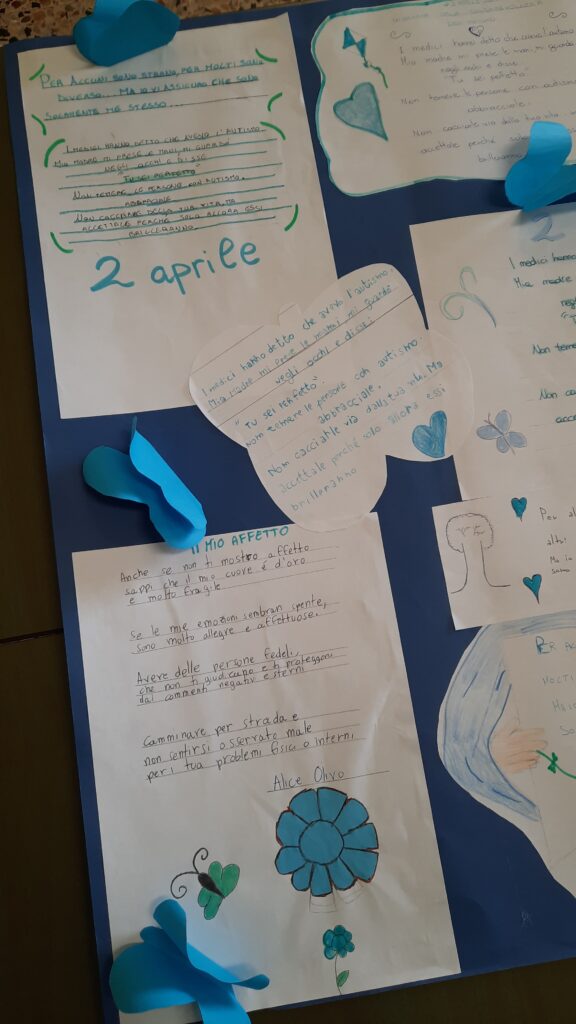 PER ALCUNI SONO STRANO, PER MOLTI SONO
DIVERSO... MA IO VI ASSICURO CHE SONO
SOLAMENTE ME STESSO...
I MEDICI HANNO DETTO CHE AVEVO L'AUTISMO.
MIA MADRE MI PRESE LE MANI, MI GUARDÒ
NEGLI OCCHI E DISSE
"TU SEI PERFETTO"
NON TEMERE LE PERSONE CON AUTISMO.
ABBRACCIALE
NON CACCIARLE DALLA TUA VITA, MA
ACCETTALE PERCHÈ SOLO ALLORA ESSI
BRILLERANNO.
2 aprile
I medici hanno detto che avevo l'autismo
Mia madre mi prese le mani, mi guardò
negli occhi e disse
"Tu sei perfetto".
Non temere le persone con autismo
abbracciale.
Non cacciarle via dalla tua vita, ma
accettale perché solo
brilleranno
I medici hanno detto che avevo l'autismo
Mia madre mi prese le mani, mi guardò
negli occhi e disse:
"TU SEI PERFETTO".
Non temere le persone con autismo.
abbracciale.
Non cacciarle via dalla tua vita. Ma
accettale perché solo allora essi
brilleranno
2
I medici hanno
Mia madre
negli
"Tu
Non teme
Non ca
acce
Per al
altri
Ma io
sono
PER AC
MOLTI
MA IO
SO
Il MIO AFFETTO
Anche se non ti mostro affetto
sappi che il mio cuore è d'oro
e molto fragile
se le mie emozioni sembran spente,
sono molto allegre e affettuose.
Avere delle persone fedeli,
che non ti giudicano e ti proteggono
dai commenti negativi esterni
Camminare per strada e
non sentirsi osservato male
per i tua problemi fisici o interni,
Alice Olivo